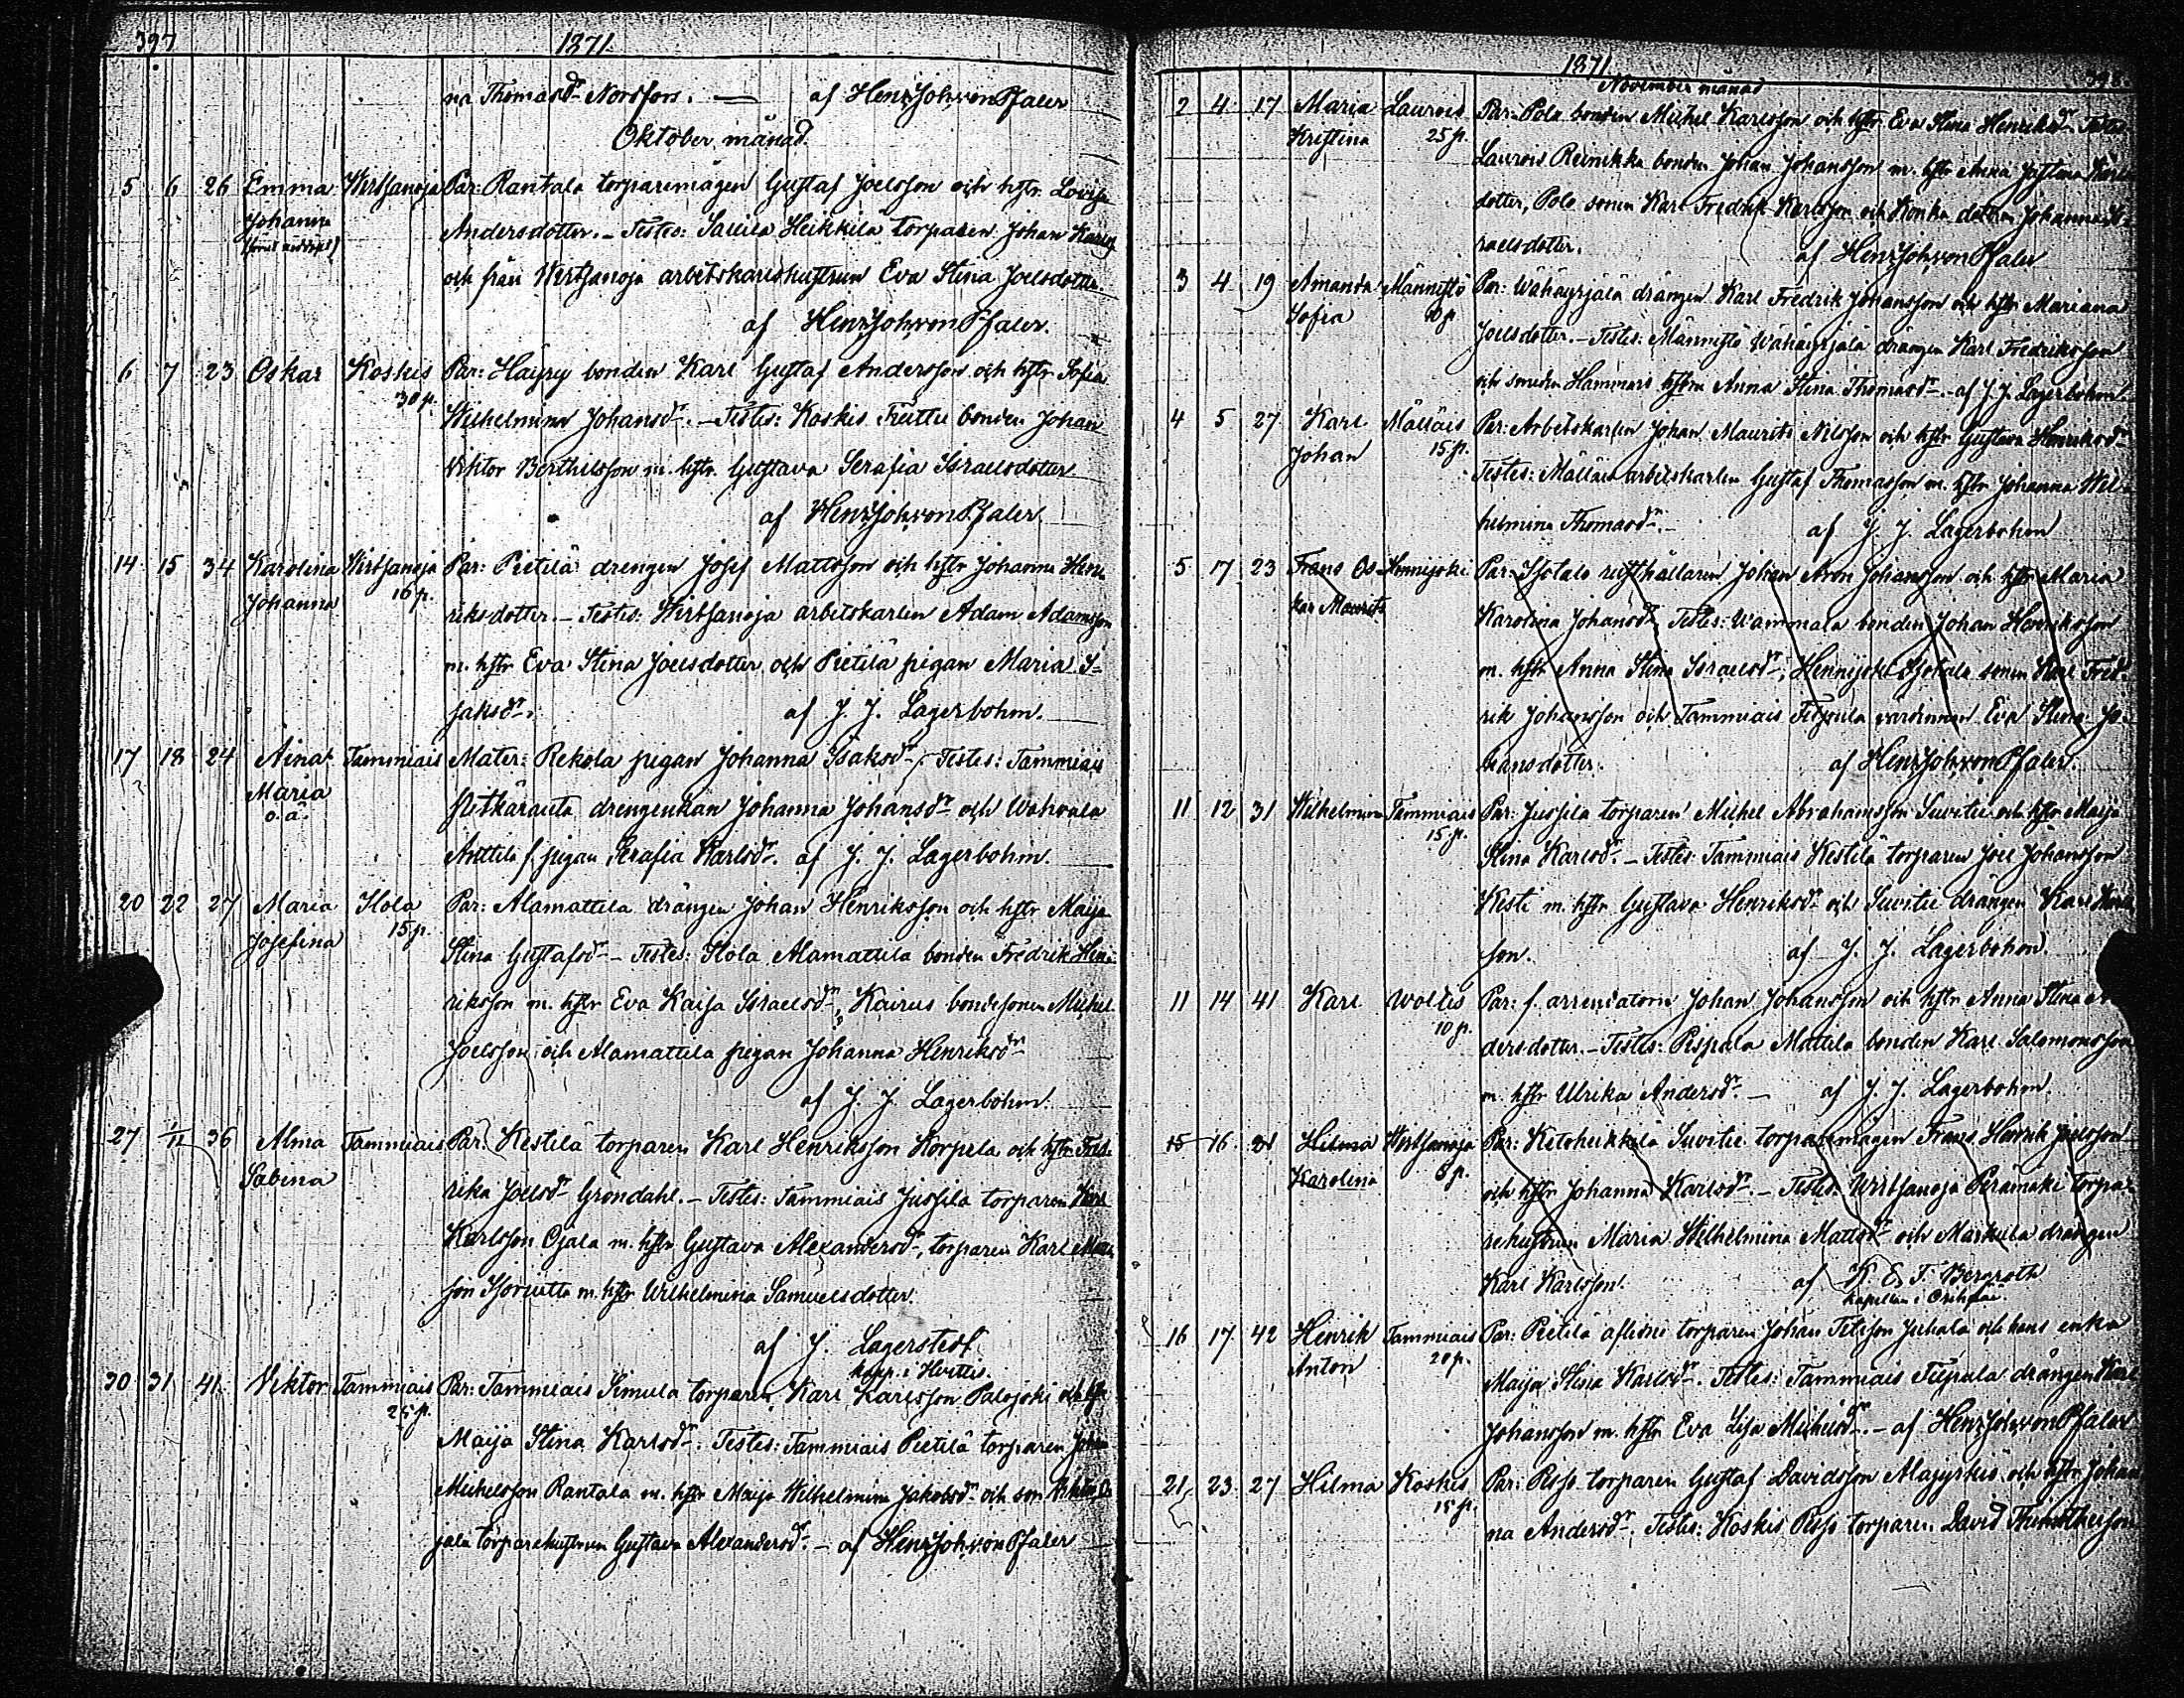 397
1871.
na Thomasdr Norsfors. — af HenrJohvonPfaler
Oktober månad.
5 6 26 Emma Wirtsanoja Par: Rantala torparemågen Gustaf Joelsson och hstr Lovisa
Johanna Andersdotter. - Testes: Heikkilä torparen Johan
och från Wirtsanoja arbetskarlshustrun Eva Stina Joelsdotter
af HenrJohvonPfaler.
6 7 23 Oskar Koskis Par: Häyry bonden Karl Gustaf Andersson och hstr Sofia
30 p. Wilhelmina Johansdr. - Testes: Koskis bonden Johan
Viktor Berthilsson m. hstr. Gustava Serafia Israelsdotter
af HenrJohvonPfaler.
14 15 34 Karolina Wirtsanoja Par: Pietilä drengen Josef Mattsson och hstr Johanna Hen-
Johanna 16 p. riksdotter. - Testes: Wirtsanoja arbetskarlen Adam Adamsson
m. hstr Eva Stina Joelsdotter och Pietilä pigan Maria I-
saksdr. af J. J. Lagerbohm.
17 18 24 Aina Tammiais Mater: Rekola pigan Johanna Isaksdr. Testes: Tammiais
Maria drengenkan Johanna Johansdr och
o.ä. Anttila f. pigan Serafia Karlsdr. af J. J. Lagerbohm.
20 22 27 Maria Ilola Par: Alamattila drängen Johan Henriksson och hstr Maija
Josefina 15 p. Stina Gustafsdr - Testes: Ilola Alamattila bonden Fredrik Hen-
riksson m. hstr Eva Kaisa Israelsdr, Kairus bondesonen Michel
Joelsson och Alamattila pigan Johanna Henriksdr
af J. J. Lagerbohm.
27 1/11 36 Alma Tammiais Par: Kestilä torparen Karl Henriksson Korpela och hstr Fred-
Sabina rika Joelsdr Gröndahl. - Testes: Tammiais Jussila torparen Karl
Karlsson Ojala m. hstr Gustava Alexandersdr, torparen Karl
son m. hstr Wilhelmina Samuelsdotter.
af J. Lagerstedt
kapp. i Hvittis.
30 31 41 Viktor Tammiais Par: Tammiais Simula torparen Karl Karlsson Palojoki och hstr
25 p. Maija Stina Karlsdr. Testes: Tammiais Pietilä torparen Johan
Michelsson Rantala m. hstr Maija Wilhelmina Jakobsdr och O-
jala torparehustrun Gustava Alexandersdr. - af HenrJohvonPfaler
1871
398.
November månad
2 4 17 Maria Laurois Par: Polo bonden Michel Karlsson och hstr Eva Stina Henriksdr Testes
Kristina 25 p. Laurois Reinikka bonden Johan Johansson m. hstr Anna Justina Karls-
dotter, Polo sonen Karl Fredrik Karlsson och Konka dottren Johanna Is-
raelsdotter. af HenrJohvonPfaler
3 4 19 Amanda Männistö Par: Wähäyrjälä drängen Karl Fredrik Johansson och hstr Mariana
Sofia 10 p. Joelsdotter. - Testes: Männistö Wähäyrjälä drängen Karl Fredriksson
och smeden Hammais hstru Anna Stina Thomasdr. - af J. J. Lagerbohm.
4 5 27 Karl Mälläis Par: Arbetskarlen Johan Maurits Nilsson och hstr Gustava Henriksdr
Johan 15 p. Testes: Mälläis arbetskarlen Gustaf Thomasson m. hstr Johanna Wil-
helmina Thomasdr. - af J. J. Lagerbohm
5 7 23 Frans Os- Hennijoki Par: Isotalo rusthållaren Johan Aron Johansson och hstr Maria
kar Maurits Karolina Johansdr, Testes: Wammala bonden Johan Henriksson
m. hstr Anna Stina Israelsdr, Hennijoki Isotalo sonen Karl Fred-
rik Johansson och Tammiais värdinnan Eva Stina Jo-
hansdotter. af HenrJohvonPfaler.
11 12 31 Wilhelmina Tammiais Par: Jussila torparen Michel Abrahamsson Suvitie och hstr Maija
15 p. Stina Karlsdr. - Testes: Tammiais Kestilä torparen Joel Johansson
Kesti m. hstr Gustava Henriksdr och Suvitie drängen Karl Karls-
son. af J. J. Lagerbohm.
11 14 41 Karl Wollis Par: f. arrendatorn Johan Johansson och hstr Anna Stina An-
10 p. dersdotter. - Testes: Pispala Mattila bonden Karl Salomonsson
m. hstr Ulrika Andersdr. — af J. J. Lagerbohm.
15 16 21 Hilma Wirtsanoja Par: Ketoheikkilä Suvitie torparemågen Frans Henrik Joelsson
Karolina 8 p. och hstr Johanna Karlsdr. - Testes: Wirtsanoja Perämäki torpa-
rehustrun Maria Wilhelmina Mattsdr och Markula drängen
Karl Karlsson. af K. E. F. Bergroth
kapellan i
16 17 42 Henrik Tammiais Par: Pietilä aflidne torparen Johan och hans enka
Anton 20 p. Maija Stina Karlsdr. Testes: Tammiais drängen Karl
Johansson m. hstr Eva Lisa Michelsdr. - af HenrJohvonPfaler
21 23 27 Hilma Koskis Par: Risso torparen Gustaf Davidsson och hstr Johan
15 p. na Andersdr. Testes: Koskis Risso torparen David